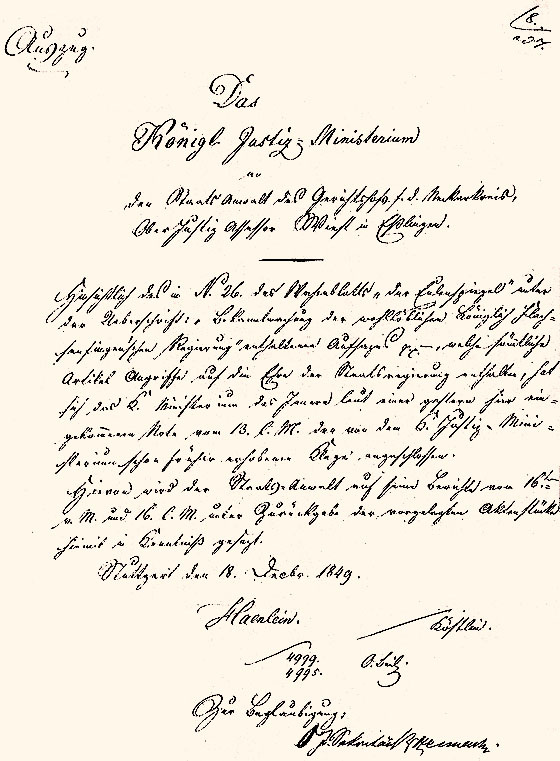 Auszug.
Das
Königl. Justiz-Ministerium
an
den Staats Anwalt des Gerichtshofs f. d. Neckarkreis,
Ober Justiz Assessor Wiest in Eßlingen.
Hinsichtlich des in N. 26. des Wochenblatts „der Eulenspiegel" unter
der Ueberschrift: „Bekanntmachung der wohllöblichen Königlich Flach-
senfingenschen Regierung" enthaltenen Aufsazes pp —, welche sämtliche
Artikel Angriffe auf die Ehre der Staatsregierung enthalten, hat
sich das K. Ministerium des Innern laut einer gestern hier ein-
gekommenen Note vom 13. l. M. der von dem K. Justiz-Mini-
sterium schon früher erhobenen Klage angeschlossen.
Hievon wird der Staats-Anwalt auf seine Berichte vom 16ten
v. M. und 16. l. M. unter Zurückgabe der vorgelegten Aktenstücke
hiemit in Kenntniß gesezt.
Stuttgart den 18. Decbr. 1849.
Haenlein. Köstlin.
4999.
4995.
Zur Beglaubigung: